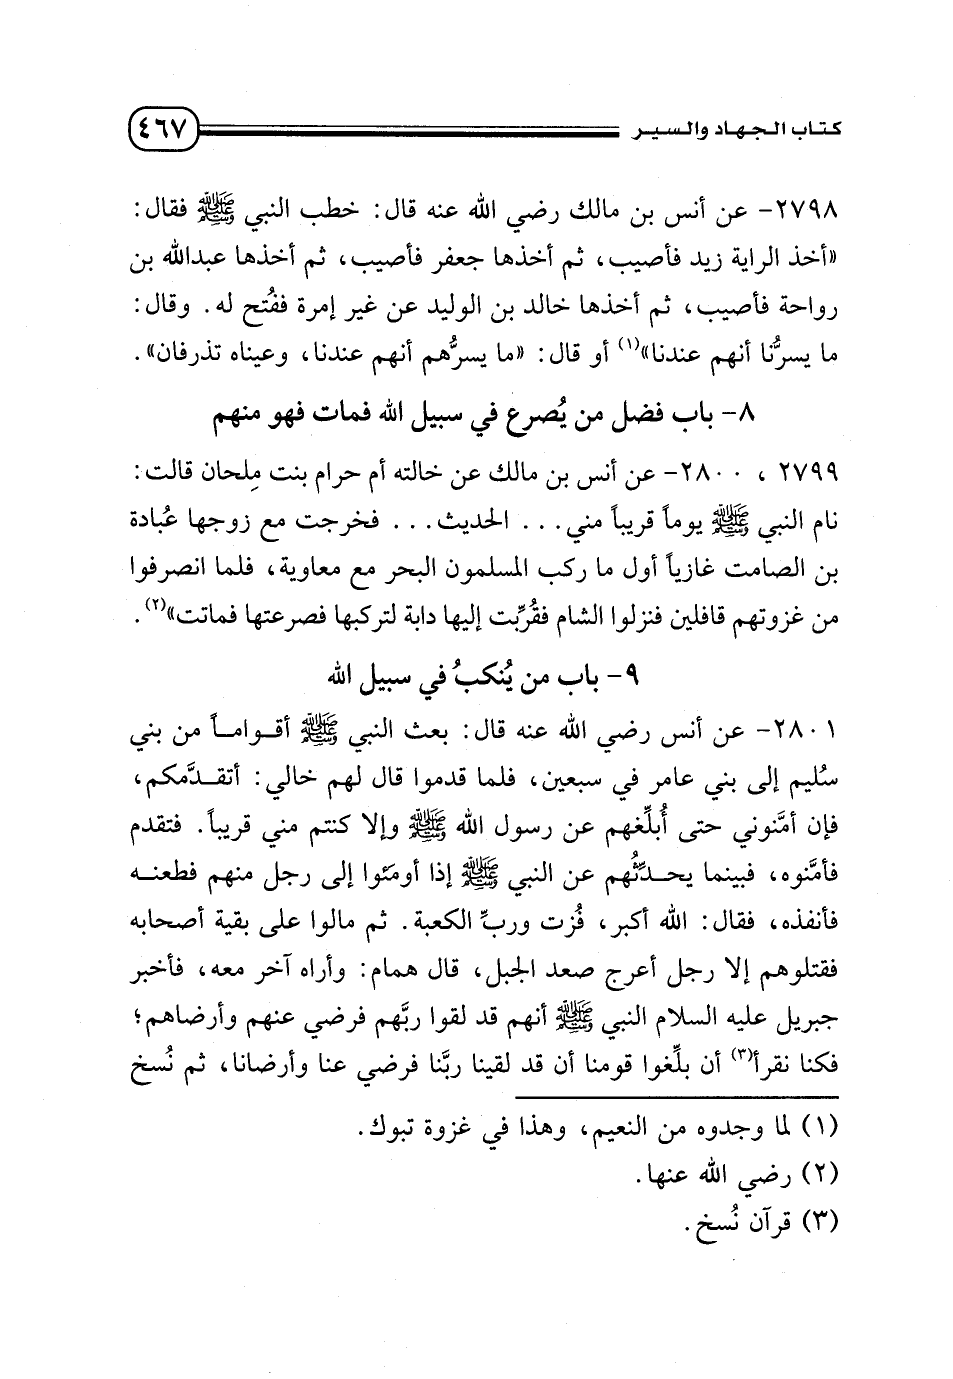 كتاب الجهاد والسير ٤٦٧
٢٧٩٨- عن أنس بن مالك رضي الله عنه قال: خطب النبي ﷺ فقال:
«أخذ الراية زيد فأصيب، ثم أخذها جعفر فأصيب، ثم أخذها عبدالله بن
رواحة فأصيب، ثم أخذها خالد بن الوليد عن غير إمرة ففُتح له. وقال:
ما يسرُّنا أنهم عندنا»(١) أو قال: «ما يسرُّهم أنهم عندنا، وعيناه تذرفان».
٨- باب فضل من يُصرع في سبيل الله فمات فهو منهم
٢٧٩٩ ، ٢٨٠٠- عن أنس بن مالك عن خالته أم حرام بنت مِلحان قالت:
نام النبي ﷺ يوماً قريباً مني... الحديث... فخرجت مع زوجها عُبادة
بن الصامت غازياً أول ما ركب المسلمون البحر مع معاوية، فلما انصرفوا
من غزوتهم قافلين فنزلوا الشام فقُرِّبت إليها دابة لتركبها فصرعتها فماتت»(٢).
٩- باب من يُنكبُ في سبيل الله
٢٨٠١- عن أنس رضي الله عنه قال: بعث النبي ﷺ أقواماً من بني
سُليم إلى بني عامر في سبعين، فلما قدموا قال لهم خالي: أتقدَّمكم،
فإن أمَّنوني حتى أُبلِّغهم عن رسول الله ﷺ وإلا كنتم مني قريباً. فتقدم
فأمَّنوه، فبينما يحدِّثُهم عن النبي ﷺ إذا أومئوا إلى رجل منهم فطعنه
فأنفذه، فقال: الله أكبر، فُزت وربِّ الكعبة. ثم مالوا على بقية أصحابه
فقتلوهم إلا رجل أعرج صعد الجبل، قال همام: وأراه آخر معه، فأخبر
جبريل عليه السلام النبي ﷺ أنهم قد لقوا ربَّهم فرضي عنهم وأرضاهم؛
فكنا نقرأ(٣) أن بلِّغوا قومنا أن قد لقينا ربَّنا فرضي عنا وأرضانا، ثم نُسخ
(١) لما وجدوه من النعيم، وهذا في غزوة تبوك.
(٢) رضي الله عنها.
(٣) قرآن نُسخ.